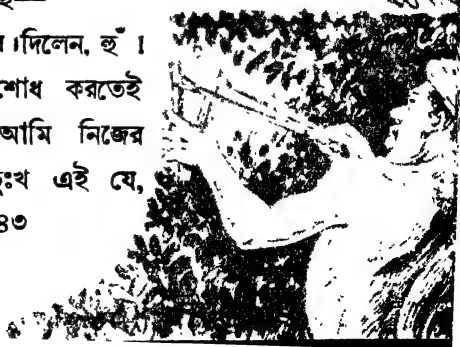 দিলেন, হুঁ ।
শোধ করতেই
আমি নিজের
এই যে,
৪৩